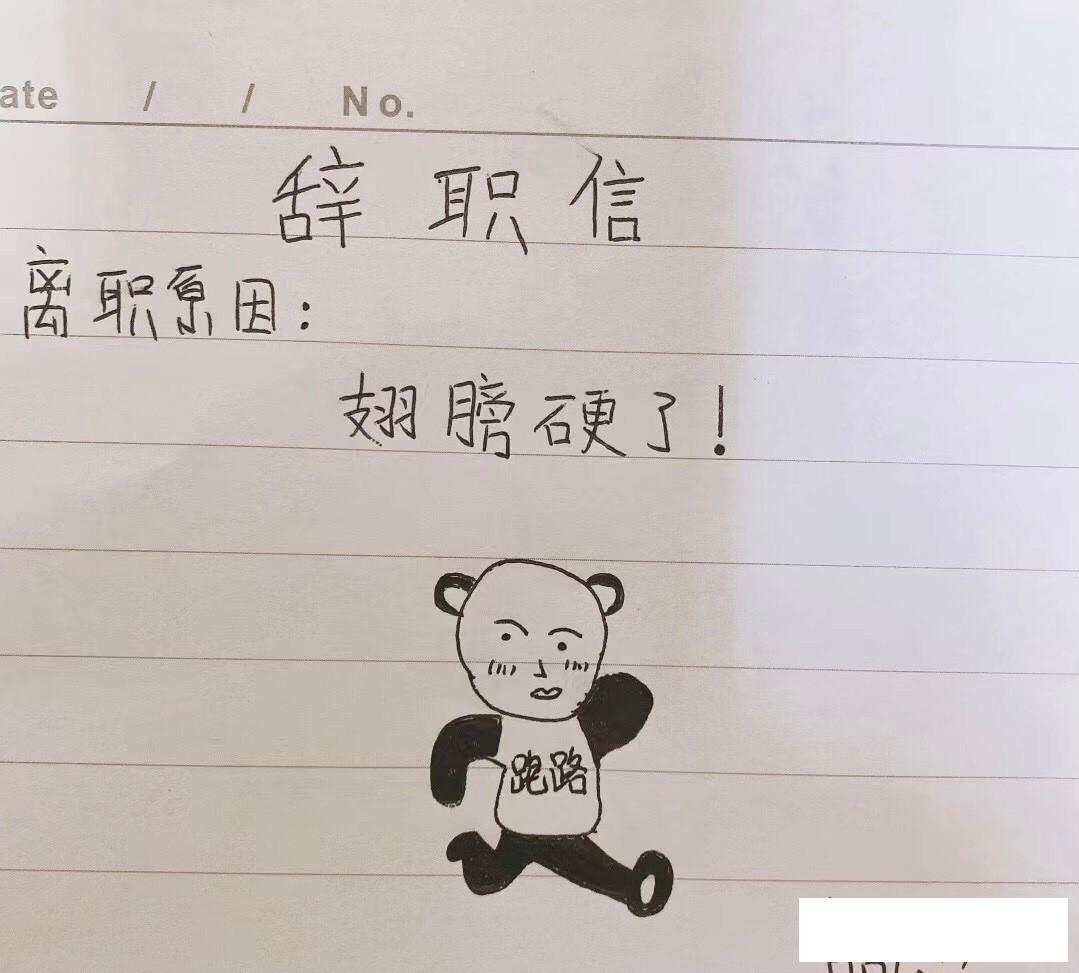 ate / / No.
辞职信
离职原因:
翅膀硬了!
跑路